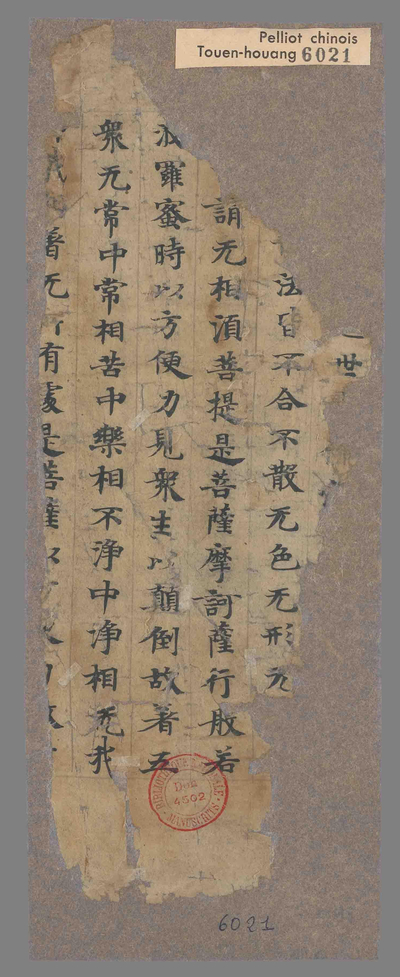 Pelliot chinois
Touen-houang 6021
世
法皆不合不散无色无形无
謂无相湏菩提是菩薩摩訶薩行般若
波羅蜜時以方便力見衆生以顛倒故著五
衆无常中常相苦中樂相不浄中浄相无我
我著无有處是菩薩以
BIBLIOTHEQUE NATIONALE
Don
4502
MANUSCRITS
6021